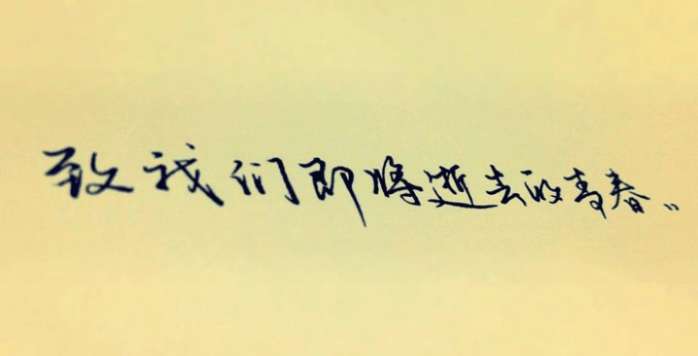 致我们即将逝去的青春。。